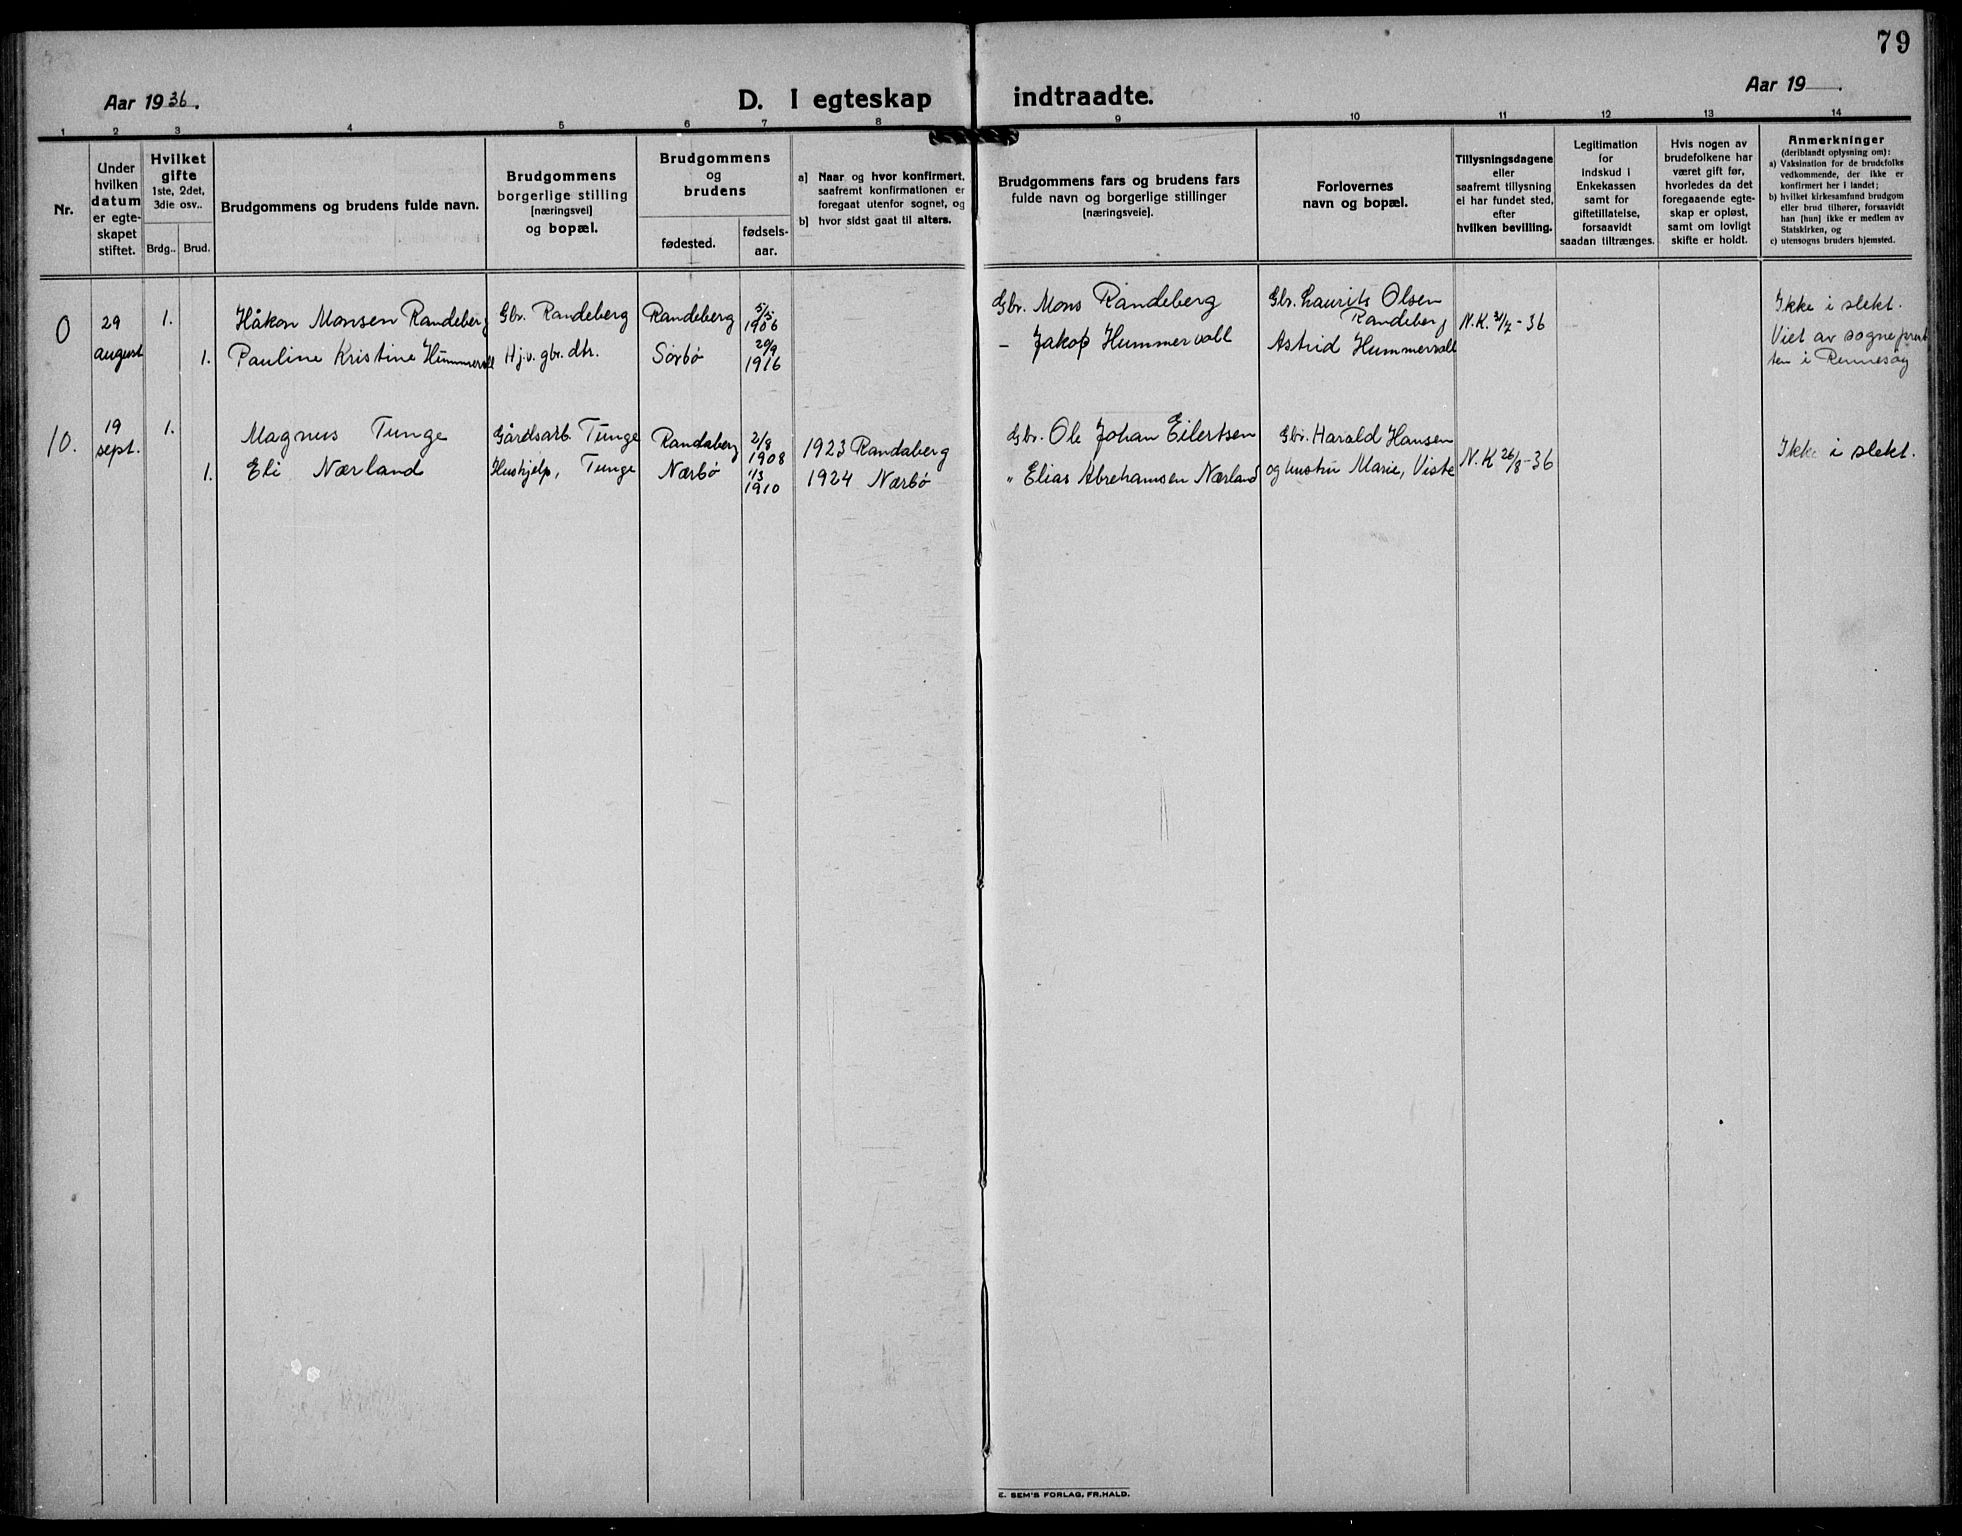 79
Aar 1936.
D. I egteskap indtraadte.
Aar 19 .
1 2 3 4 5 6 7 8 9 10 11 12 13 14
Nr.
Under
hvilken
datum
er egte-
skapet
stiftet.
Hvilket
gifte
1ste, 2det,
3die osv..
Brdg.. Brud.
Brudgommens og brudens fulde navn.
Brudgommens
borgerlige stilling
[næringsvei]
og bopæl.
Brudgommens
og
brudens
fødested.
fødsels-
aar.
a] Naar og hvor konfirmert,
saafremt konfirmationen er
foregaat utenfor sognet, og
b] hvor sidst gaat til alters.
Brudgommens fars og brudens fars
fulde navn og borgerlige stillinger
[næringsveie].
Forlovernes
navn og bopæl.
Tillysningsdagene
eller
saafremt tillysning
ei har fundet sted,
efter
hvilken bevilling.
Legitimation
for
Indskud i
Enkekassen
samt for
giftetillatelse,
forsaavidt
saadan tiltrænges.
Hvis nogen av
brudefolkene har
været gift før,
hvorledes da det
foregaaende egte-
skap er opløst,
samt om lovligt
skifte er holdt.
Anmerkninger
(deriblandt oplysning om):
a) Vaksination for de brudefolks
vedkommende, der ikke er
konfirmert her i landet;
b) hvilket kirkesamfund brudgom
eller brud tilhører, forsaavidt
han [hun] ikke er medlem av
Statskirken, og
c) utensogns bruders hjemsted.
0 29 1. Håkon Monsen Randeberg Gbr. Randeberg Randeberg 5/5 1906 Gbr. Mons Randeberg Gbr. Laurits Olsen Randeberg N.K. 31/7-36 Ikke i slekt.
august 1. Pauline Kristine Hummervoll Hj.v. gbr. dtr. Sørbø 20/9 1916 – Jakop Hummervoll Astrid Hummervoll Viet av sogneprest
ten i Rennesøy
10. 19 sept. 1. Magnus Tunge Gårdsarb. Tunge Randaberg 2/8 1908 1923 Randaberg Gbr. Ole Johan Eilertsen Gbr. Harald Hansen N.K 26/8-36 Ikke i slekt.
1. Eli Nærland Hushjelp, Tunge Nærbø 1/3 1910 1924 Nærbø " Elias Abrehamsen Nærland og hustru Marie, Viste
E. SEM'S FORLAG, FR.HALD.